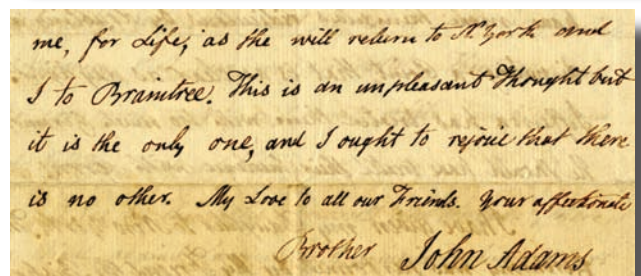 me, for Life, as she will return to N. York and
I to Braintree. This is an unpleasant Thought but
it is the only one, and I ought to rejoice that there
is no other. My Love to all our Friends. Your affectionate
Brother John Adams